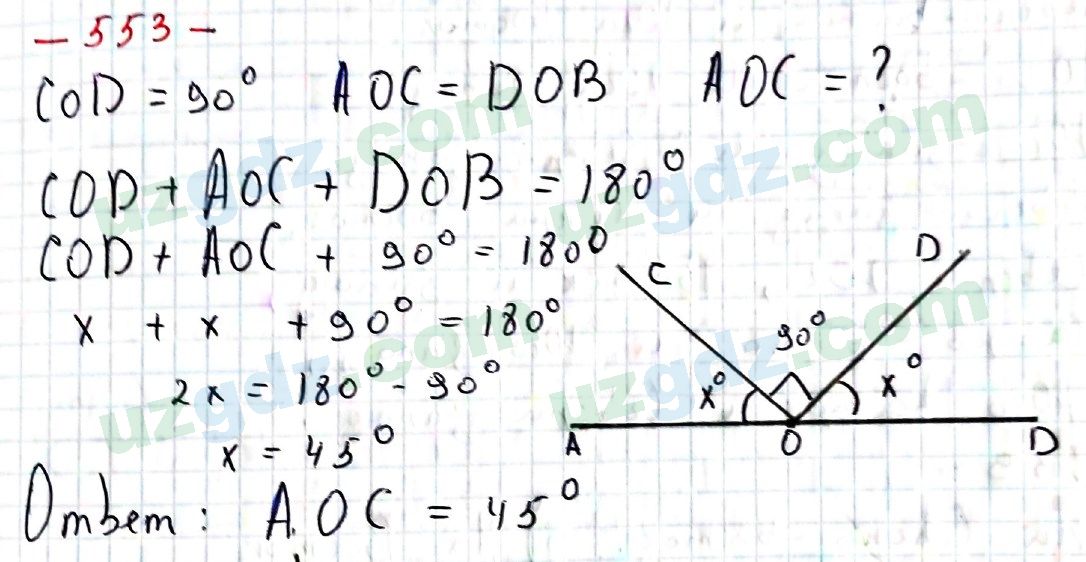 - 553 -
COD = 90° AOC = DOB AOC = ?
COD + AOC + DOB = 180°
COD + AOC + 90° = 180°
x + x + 90° = 180°
2x = 180° - 90°
x = 45°
Ответ: AOC = 45°
C D
90°
x° x°
A O D
uzgdz.com uzgdz.com
uzgdz.com uzgdz.com